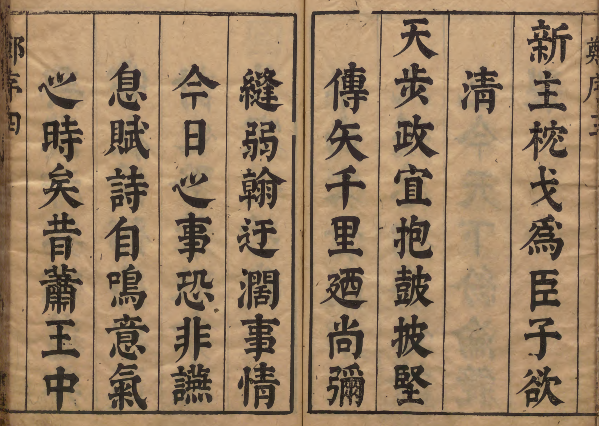 新主枕戈爲臣子欲
清
天步政宜抱鼓披堅
傳矢千里廼尚彌
縫弱翰迂濶事情
今日之事恐非讌
息賦詩自鳴意氣
之時矣昔蕭王中
序四